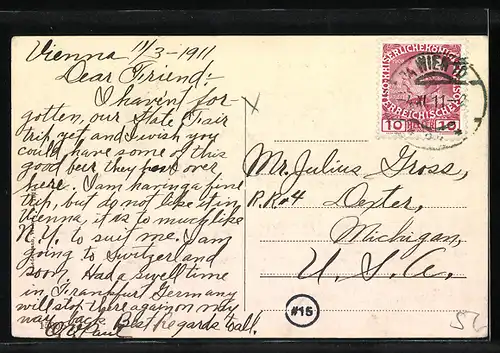 Vienna 11/3-1911
Dear Friend:-
I havent for-
gotten, our State Fair
trip yet and I wish you
could have some of this
good beer, they have over
here. I am having a fine
trip, but do not like it in
Vienna, it is to much like
N.Y. to suit me. I am
going to Switzerland
soon. Had a swell time
in Frankfurt Germany
will stop there again on my
way back. Best regards to all.
Mr. Julius Gross,
R.R. #4 Dexter,
Michigan,
U. S. A.
WIEN
10 10
#15